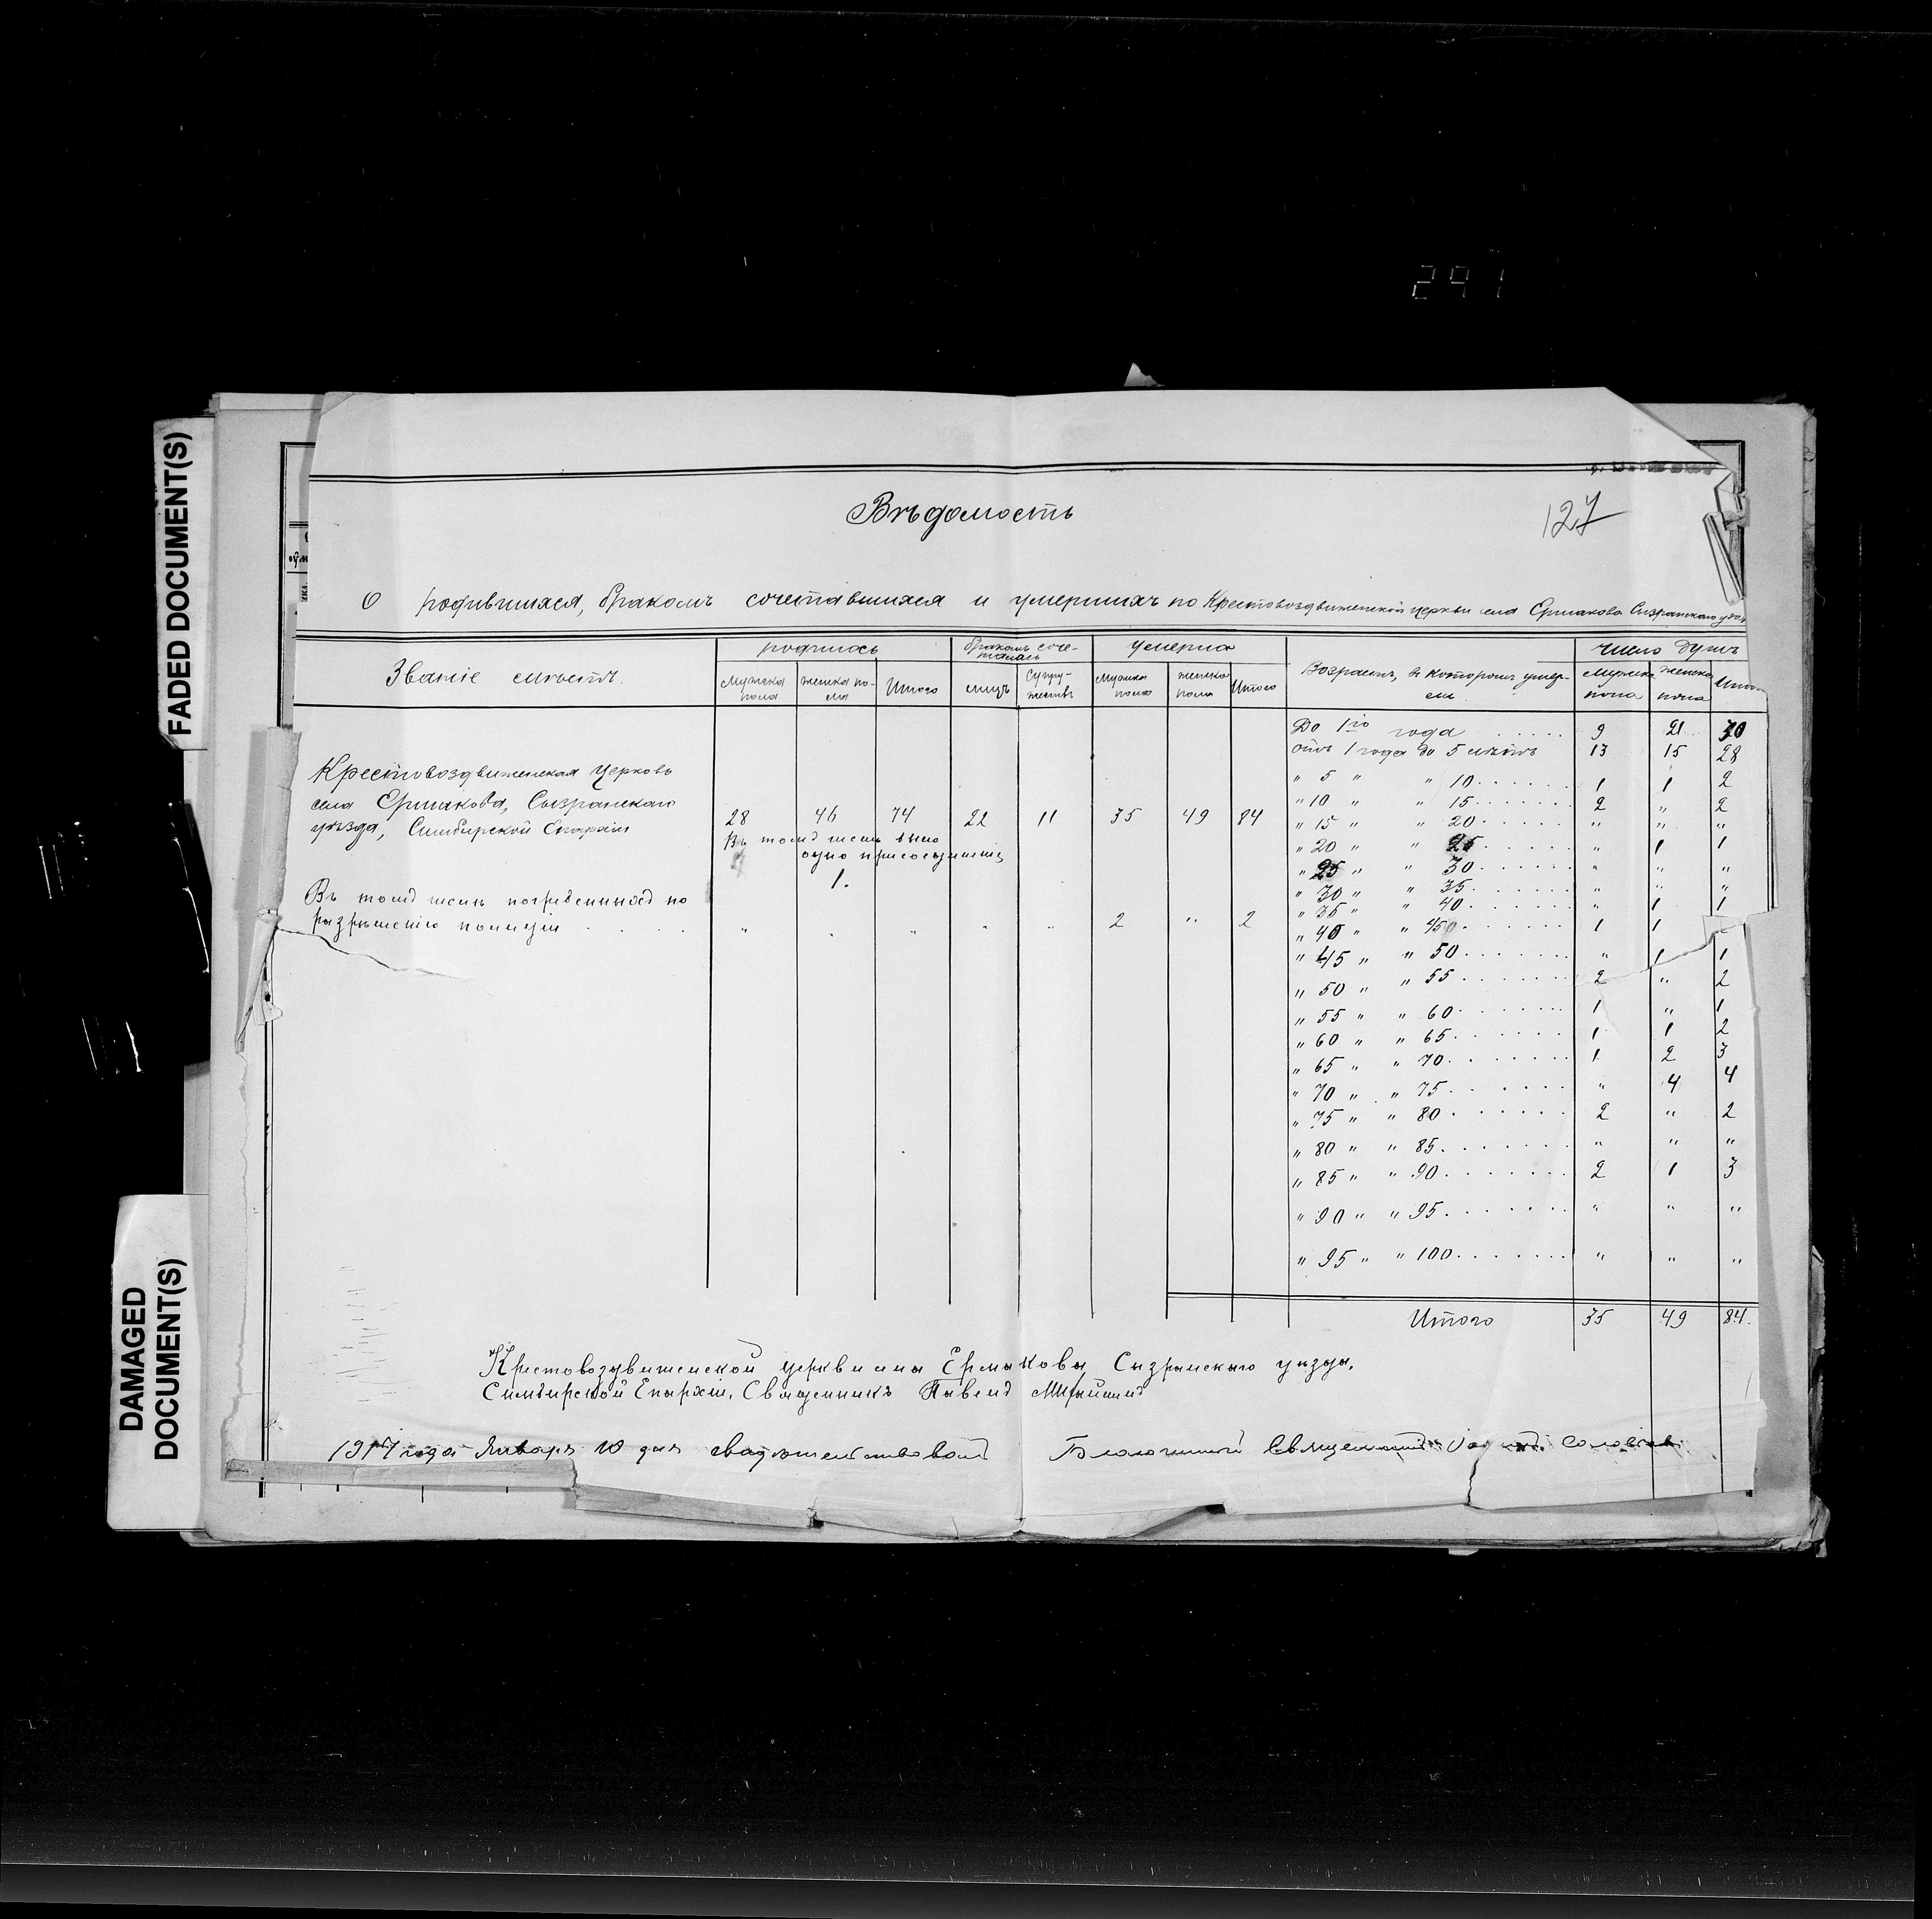 291
FADED DOCUMENT(S)
DAMAGED DOCUMENT(S)
127
Вѣдомость
О родившихся, бракомъ сочетавшихся и умершихъ по Крестовоздвиженской церкви села Ермакова Сызранскаго уѣзда
Званіе мѣстъ.
родилось
бракомъ соче-
талось
умерло
число душъ
Мужска пола
женска по-
ла
Итого
лицъ
Супру-
жествъ
Мужска пола
женска пола
Итого
Возрастъ, въ которомъ умер-
ли
Мужска пола
Женска пола
Итого
Крестовоздвиженская Церковь
села Ермакова, Сызранскаго
уѣзда, Симбирской Епархіи
28 46 74 22 11 35 49 84
Въ томъ числѣ было
одно присоединеніе
1.
Въ томъ числѣ погребенныхъ по
разрѣшенію полиціи . . . . " " " " " 2 " 2
До 1го года . . . . . 9 21 30
отъ 1 года до 5 лѣтъ 13 15 28
" 5 " " 10 . . . . . . 1 1 2
" 10 " " 15 . . . . . . 2 " 2
" 15 " " 20 . . . . . . " " "
" 20 " " 25 . . . . . . " 1 1
" 25 " " 30 . . . . . . " " "
" 30 " " 35 . . . . . . " " "
" 35 " " 40 . . . . . . " 1 1
" 40 " " 45 . . . . . . 1 1
" 45 " " 50 . . . . . . " 1 1
" 50 " " 55 . . . . . . 2 " 2
" 55 " " 60 . . . . . . 1 " 1
" 60 " " 65 . . . . . . 1 1 2
" 65 " " 70 . . . . . . 1 2 3
" 70 " " 75 . . . . . . " 4 4
" 75 " " 80 . . . . . . 2 " 2
" 80 " " 85 . . . . . . " " "
" 85 " " 90 . . . . . . 2 1 3
" 90 " " 95 . . . . . . " " "
" 95 " " 100 . . . . . . " " "
Итого 35 49 84.
Крестовоздвиженской церкви села Ермакова, Сызранскаго уѣзда,
Симбирской Епархіи, Священникъ Павелъ
1917 года Января 10 дня свидѣтельствовалъ Благочинный Священникъ Соловьевъ